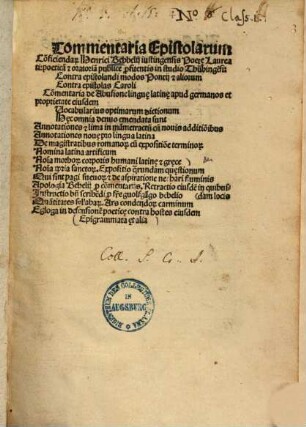 Nº 8 Class. l.
Commentaria Epistolarum
Cōficiendarū Henrici Bebelii iustingensis Poete Laurea
ti: poeticā ⁊ oratoriā publice ꝓfitentis in studio Thubingēsi
Contra epistolandi modos Pontij ⁊ aliorum
Contra epistolas Caroli
Cōmentaria de Abusione lingue latine apud germanos et
proprietate eiusdem
Vocabularius optimarum dictionum
Hec omnia denuo emendata sunt
Annotationes ⁊ lima in māmetractū cū nouis additiōibus
Annotationes noue pro lingua latina
De magistratibus romanorū cū expositiōe terminorū
Nomina latina artificum
Noīa morboꝝ corporis humani latine ⁊ grece
Noīa ꝓpria sanctoꝝ. Expositio qrundam questionum
Qui sint pagi sueuoꝝ ⁊ de aspiratione ne: bari ꝭ numinis
Apologia Bebelii ꝓ cōmentariis. Retractio eiusdē in quibus
Instructio bn̄ scribēdi
dam locis
Quātitates sillabaꝝ. Ars condendorū carminum
Egloga in defensionē poetice contra hostes eiusdem
Epigrammata et alia
Coll. S. C. J.
IN
AUGSBURG